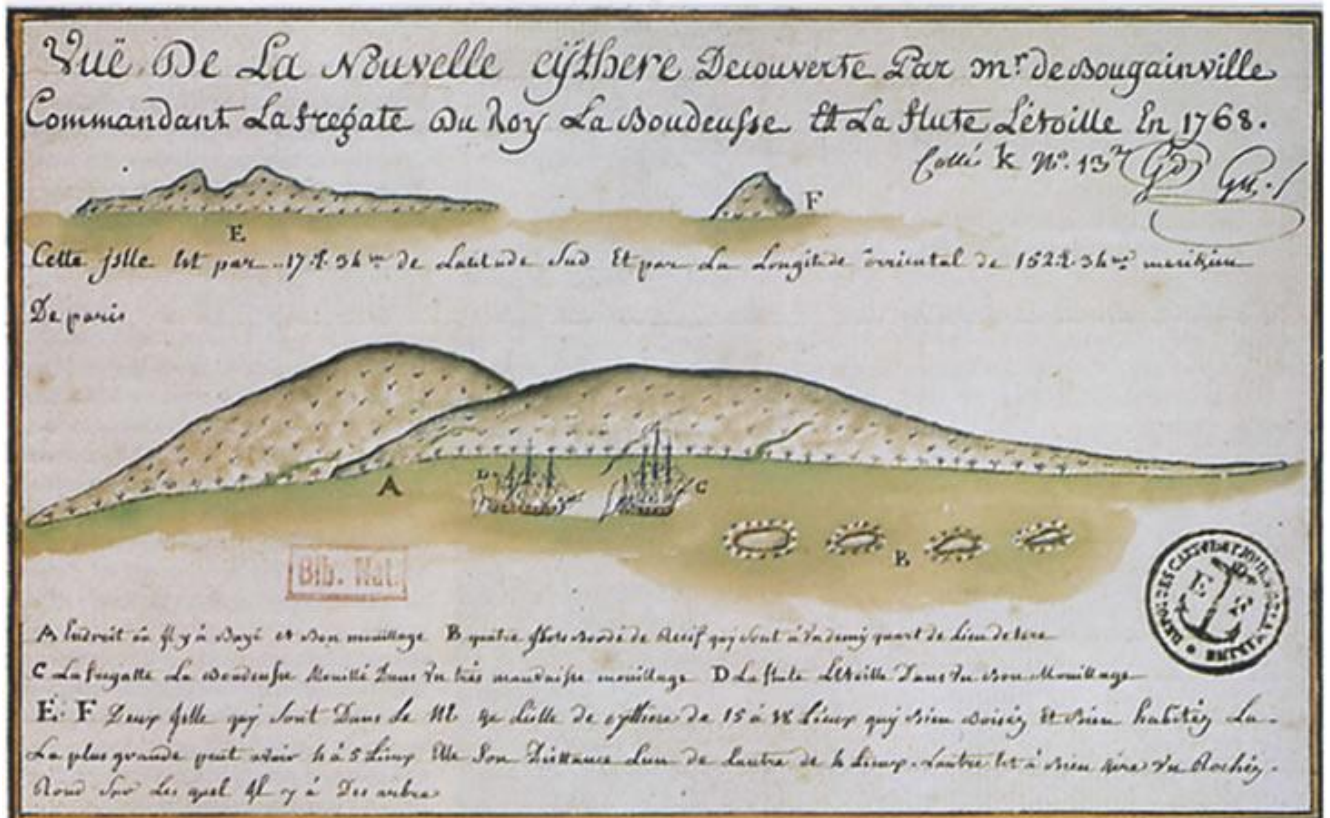 Vuë De La Nouvelle cÿthere Decouverte Par mr. de Bougainville
Commandant La fregate Du Roy La Boudeusse Et La flute Létoille En 1768.
k No. 13
E
F
Cette jslle Est par 17 d. 34 de Latitude Sud Et par La Longitude orriental de 152 d. 34 meridien
De paris
A
D
C
B
Bib. Nat.
A Endroit où jl y à Bon mouillage B quatre jlots Bordé de Recif qui sont à demy quart de Lieu de tere
C La fregatte La Boudeusse Mouillé Dans un très mauvaisse mouillage D La flute Létoille Dans un Bon Mouillage
E. F Deux jslle quy sont Dans le de Lislle de cythere de 15 à 18 Lieux quy Bien Boiséz Et Bien habitéz La
La plus grande peut avoir 4 à 5 Lieux Elle Son Distance Lun de Lautre de 4 Lieux. Lautre Est à Bien dire un Rochéz
Rond Sur Les quel jl y à Des arbre